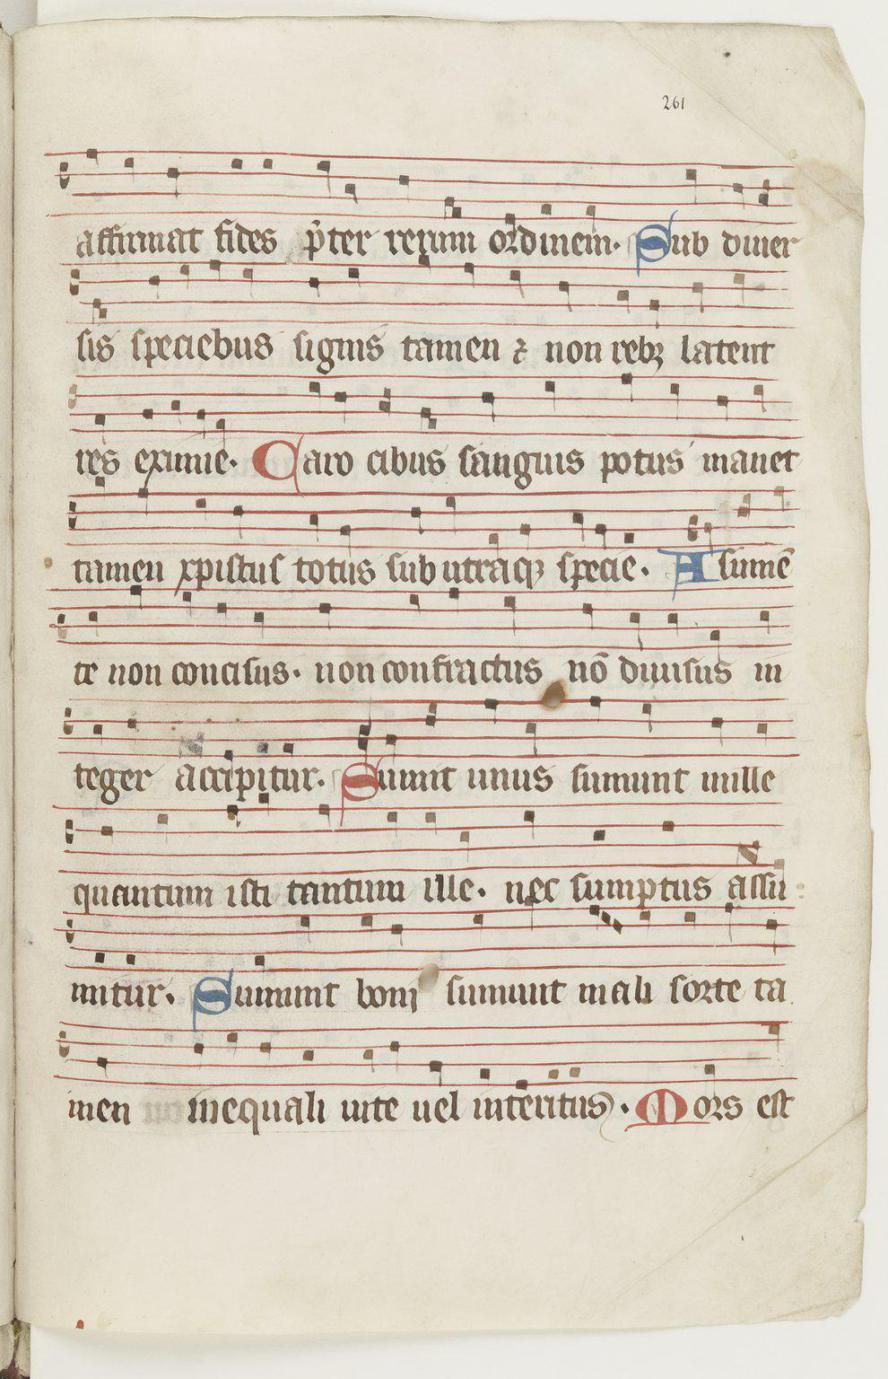 261
affirmat fides p̄ter rerum ordinem. Sub diuer
sis speciebus signis tamen ⁊ non rebꝫ latent
res eximie. Caro cibus sanguis potus manet
tamen xpistus totus sub utraqꝫ specie. A sumē
te non concisus. non confractus nō diuisus in
teger accipitur. Sumit unus sumunt mille
quantum isti tantum ille. nec sumptus assu
mitur. Sumunt boni sumunt mali sorte ta
men inequali uite uel interitus. Mors est